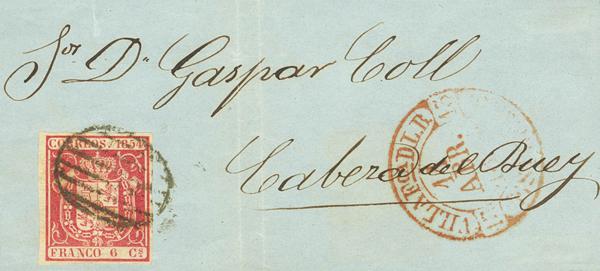 Sor Dn Gaspar Coll
Cabeza del Buey
CORREOS 1854
FRANCO 6 Cs
ABR.